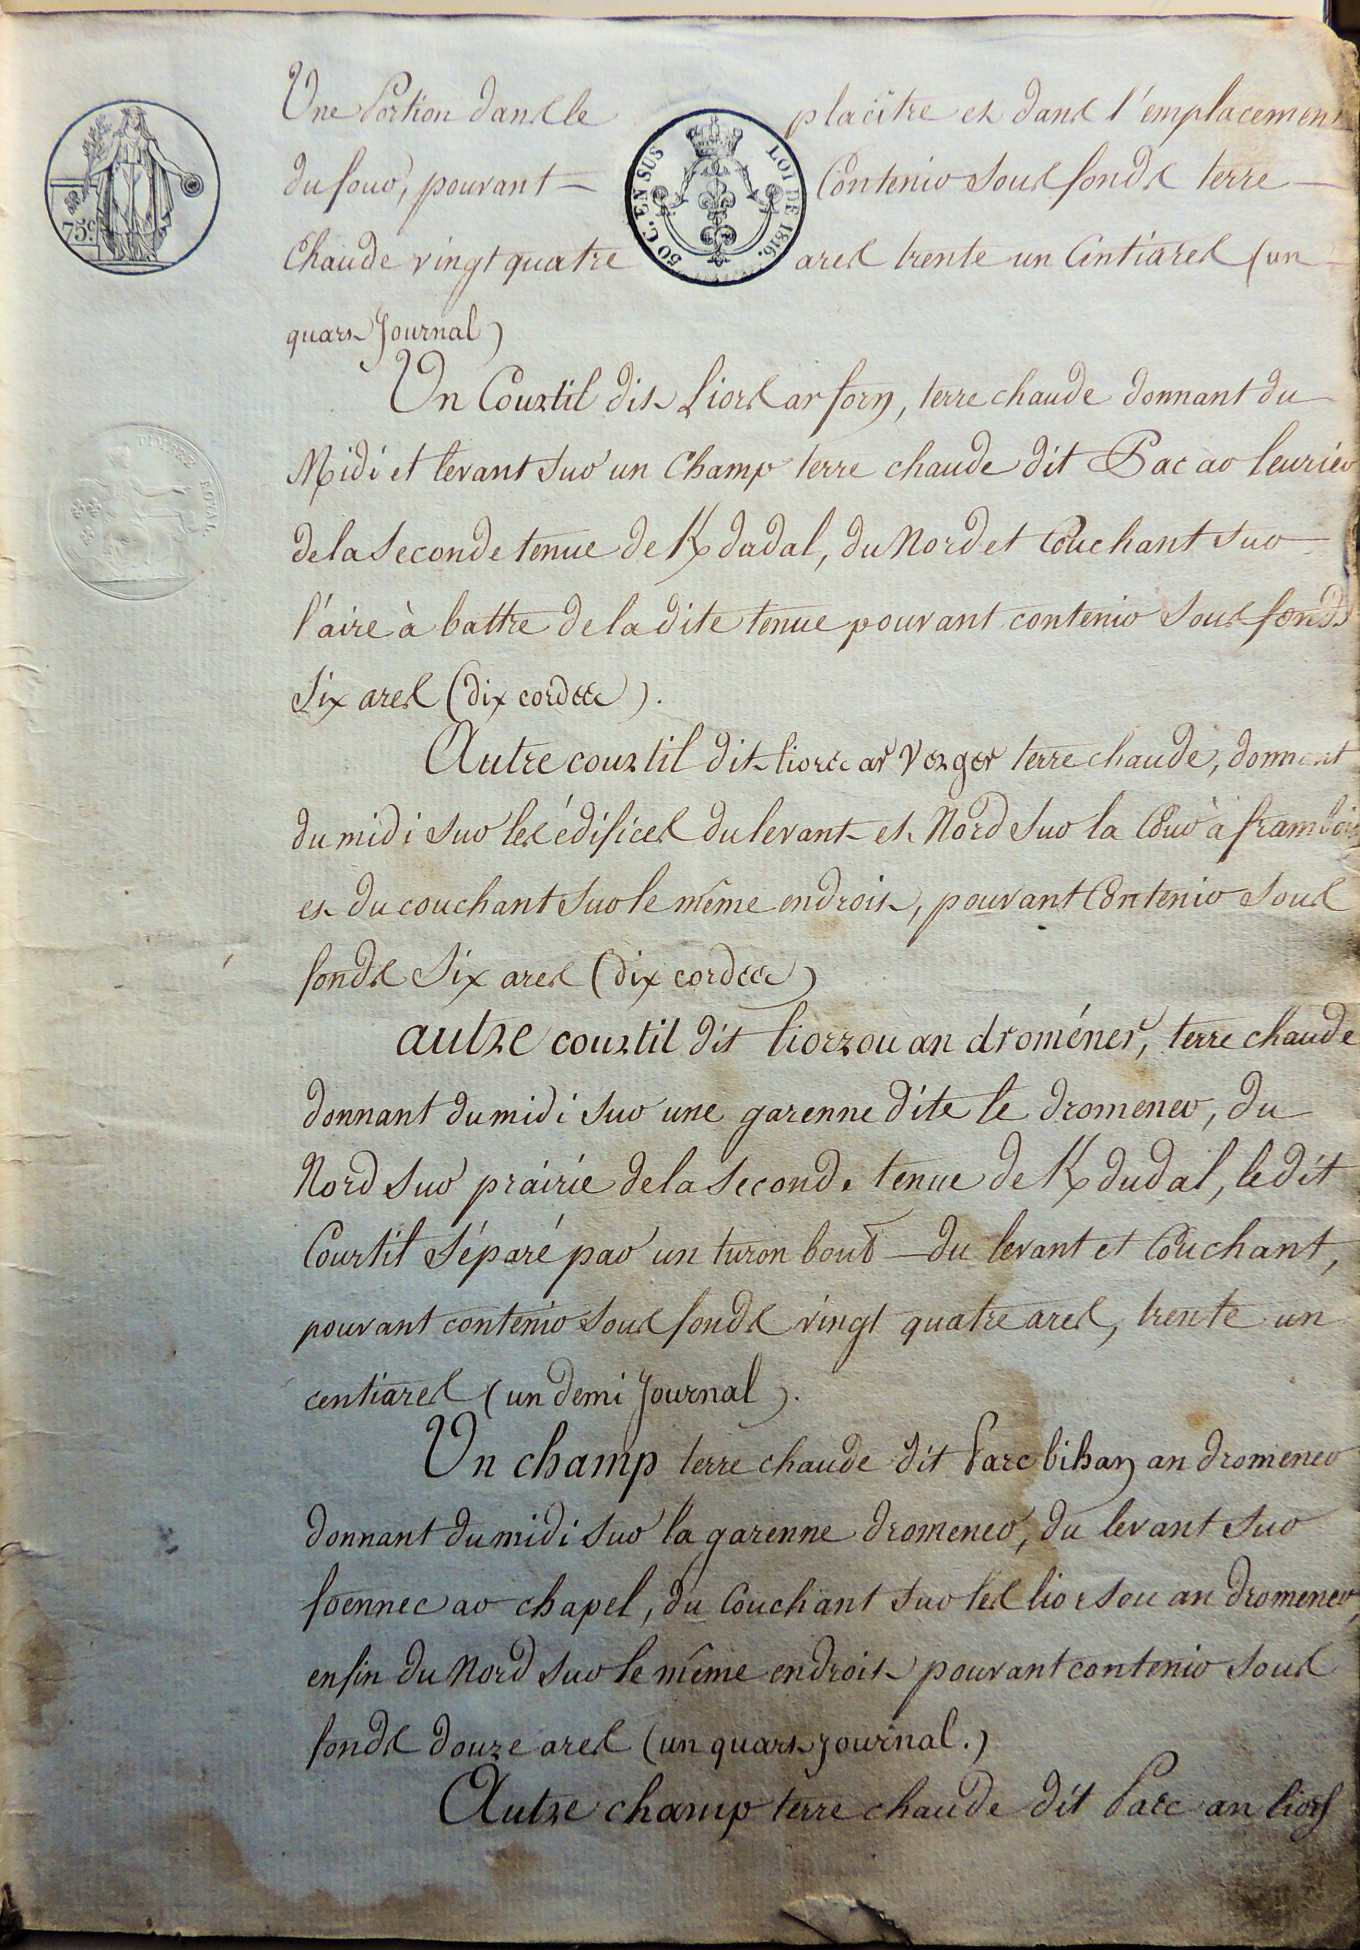 Une Portion dans le placitre et dans l'emplacement
du four, pouvant Contenir sous fonds terre
Chaude vingt quatre ares trente un Centiares (un
quart Journal)
75c
50 C. EN SUS LOI DE 1816.
Un Courtil dit Liors ar forn, terre chaude donnant du
Midi et levant sur un Champ terre chaude dit Parc ar
de la Seconde tenue de K dudal, du Nord et Couchant sur
l'aire à battre de la dite tenue pouvant contenir sous fonds
Six ares (dix cordes).
TIMBRE ROYAL
Autre courtil dit liors ar Verger terre chaude, donnant
du midi sur les édifices du levant et Nord sur la Cour à
et du couchant sur le même endroit, pouvant Contenir sous
fonds Six ares (dix cordes)
autre courtil dit liorzou an droméner, terre chaude
donnant du midi sur une garenne dite le dromener, du
Nord sur prairie de la seconde tenue de K dudal, le dit
Courtil séparé par un turon bout du levant et Couchant,
pouvant contenir sous fonds vingt quatre ares, trente un
centiares (un demi Journal).
Un champ terre chaude dit Parc bihan an dromener
donnant du midi sur la garenne dromener, du levant sur
foennec ar chapel, du Couchant sur les liorsou an dromener,
enfin du Nord sur le même endroit pouvant contenir sous
fonds douze ares (un quart journal.)
Autre champ terre chaude dit Parc an liors